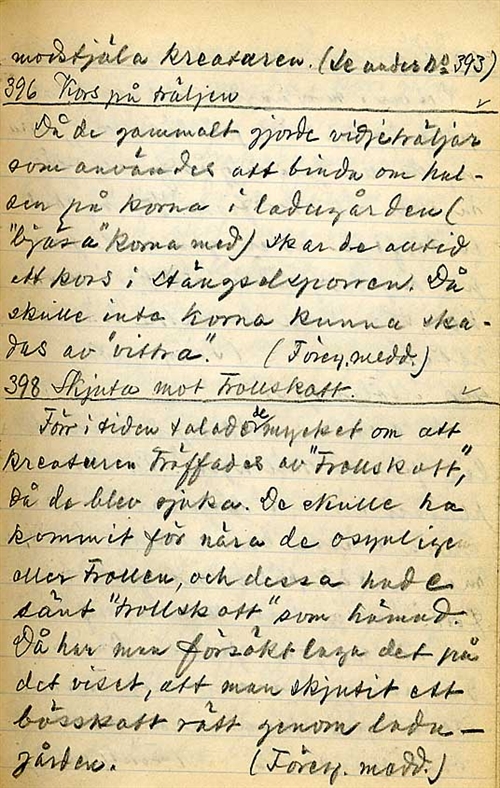 modstjäla kreaturen. (Se under No 393)
396 Kors på träljen
Då de gammalt gjorde vidjeträljar
som användes att binda om hal-
sen på korna i ladugården (
"bjäsa" korna med) skar de alltid
ett kors i stängselsporren. Då
skulle inte korna kunna ska-
das av "vittra". (Föreg. medd.)
398 Skjuta mot Trollskott.
Förr i tiden talade de mycket om att
kreaturen träffades av "Trollskott",
då de blev sjuka. De skulle ha
kommit för nära de osynliga
eller Trollen, och dessa hade
sänt "trollskott" som hämnd.
Då har man försökt laga det på
det viset, att man skjutit ett
bösskott rätt genom ladu-
gården. (Föreg. medd.)